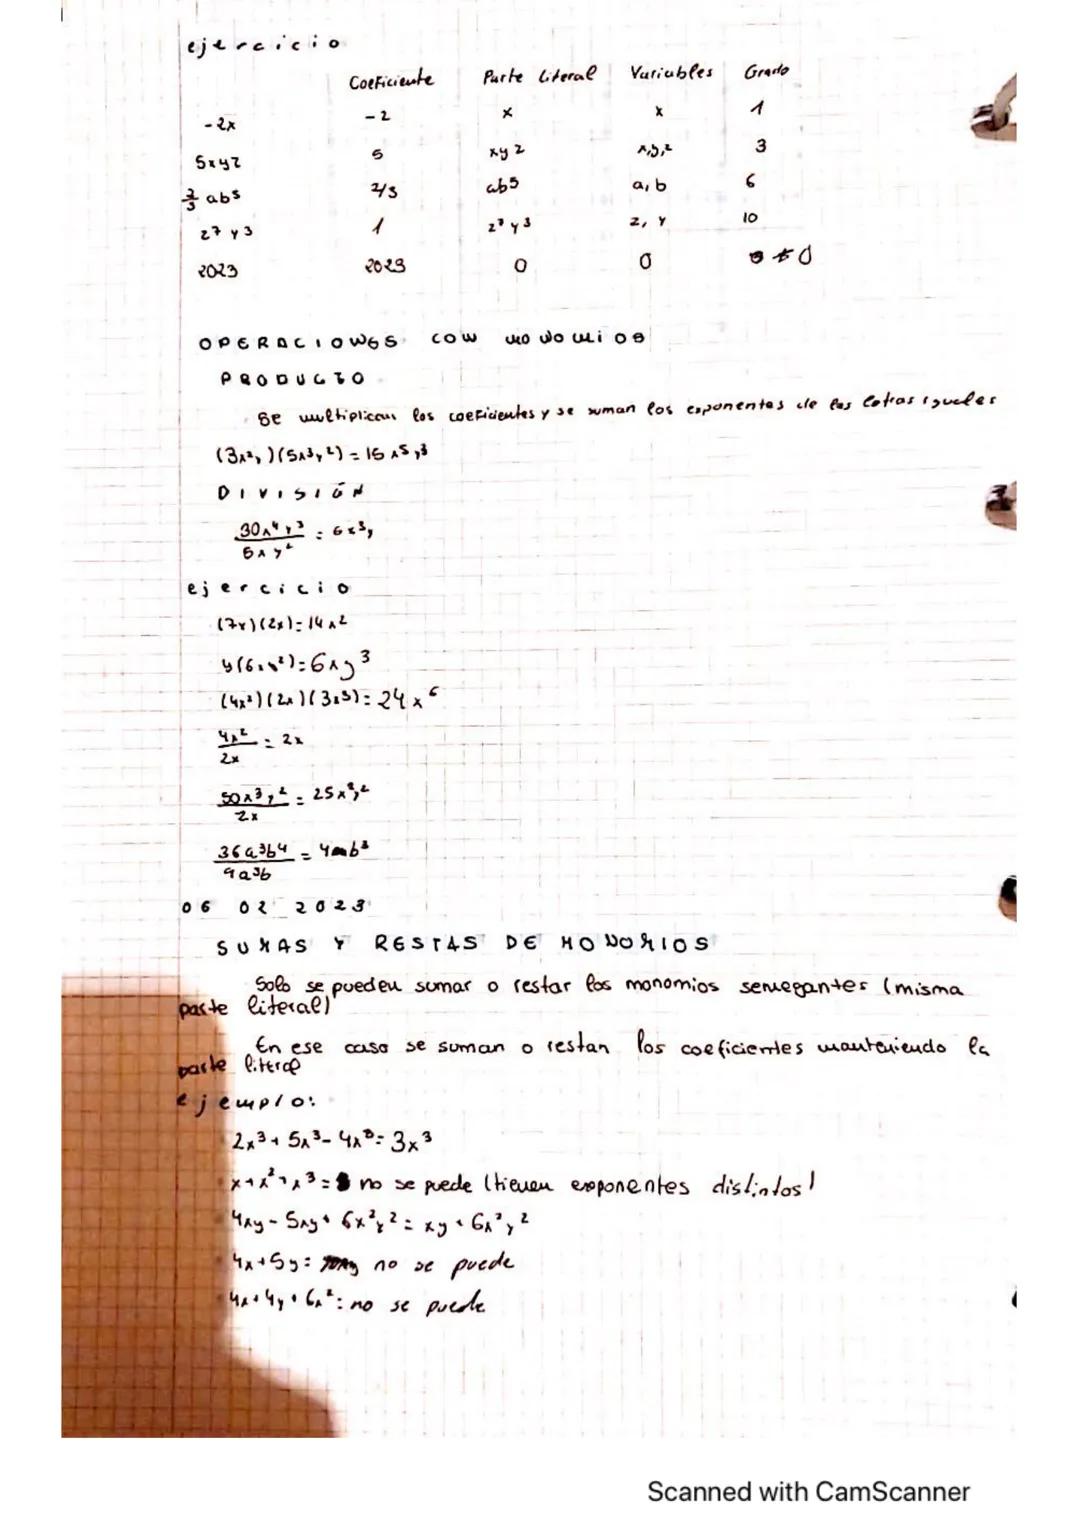 ejercicio
Coeficiente Parte Literal Variables Grado
-2x -2 x x 1
5xyz 5 xyz x,y,z 3
2/3 ab5 2/3 ab5 a, b 6
z7 y3 1 z7 y3 z, y 10
2023 2023 0 0 0
OPERACIONES CON MONOMIOS
PRODUCTO
Se multiplican los coeficientes y se suman los exponentes de las letras iguales
(3x²y)(5x³y²) = 15x⁵y³
DIVISIÓN
30x⁴y³ / 5xy² = 6x³y
ejercicio
(7x)(2x) = 14x²
y(6xy²) = 6xy³
(4x²)(2x)(3x³) = 24x⁶
4x² / 2x = 2x
50x³y² / 2x = 25x²y²
36a³b4 / 9a³b = 4b³
06 02 2023
SUMAS Y RESTAS DE MONOMIOS
Solo se pueden sumar o restar los monomios semegantes (misma
parte literal)
En ese caso se suman o restan los coeficientes manteniendo la
parte literal
ejemplo:
2x³ + 5x³ - 4x³ = 3x³
x + x² + x³ = no se puede (tienen exponentes distintos)
4xy - 5xy + 6x²y² = xy + 6x²y²
4x + 5y = no se puede
4x + 4y + 6x² = no se puede
Scanned with CamScanner